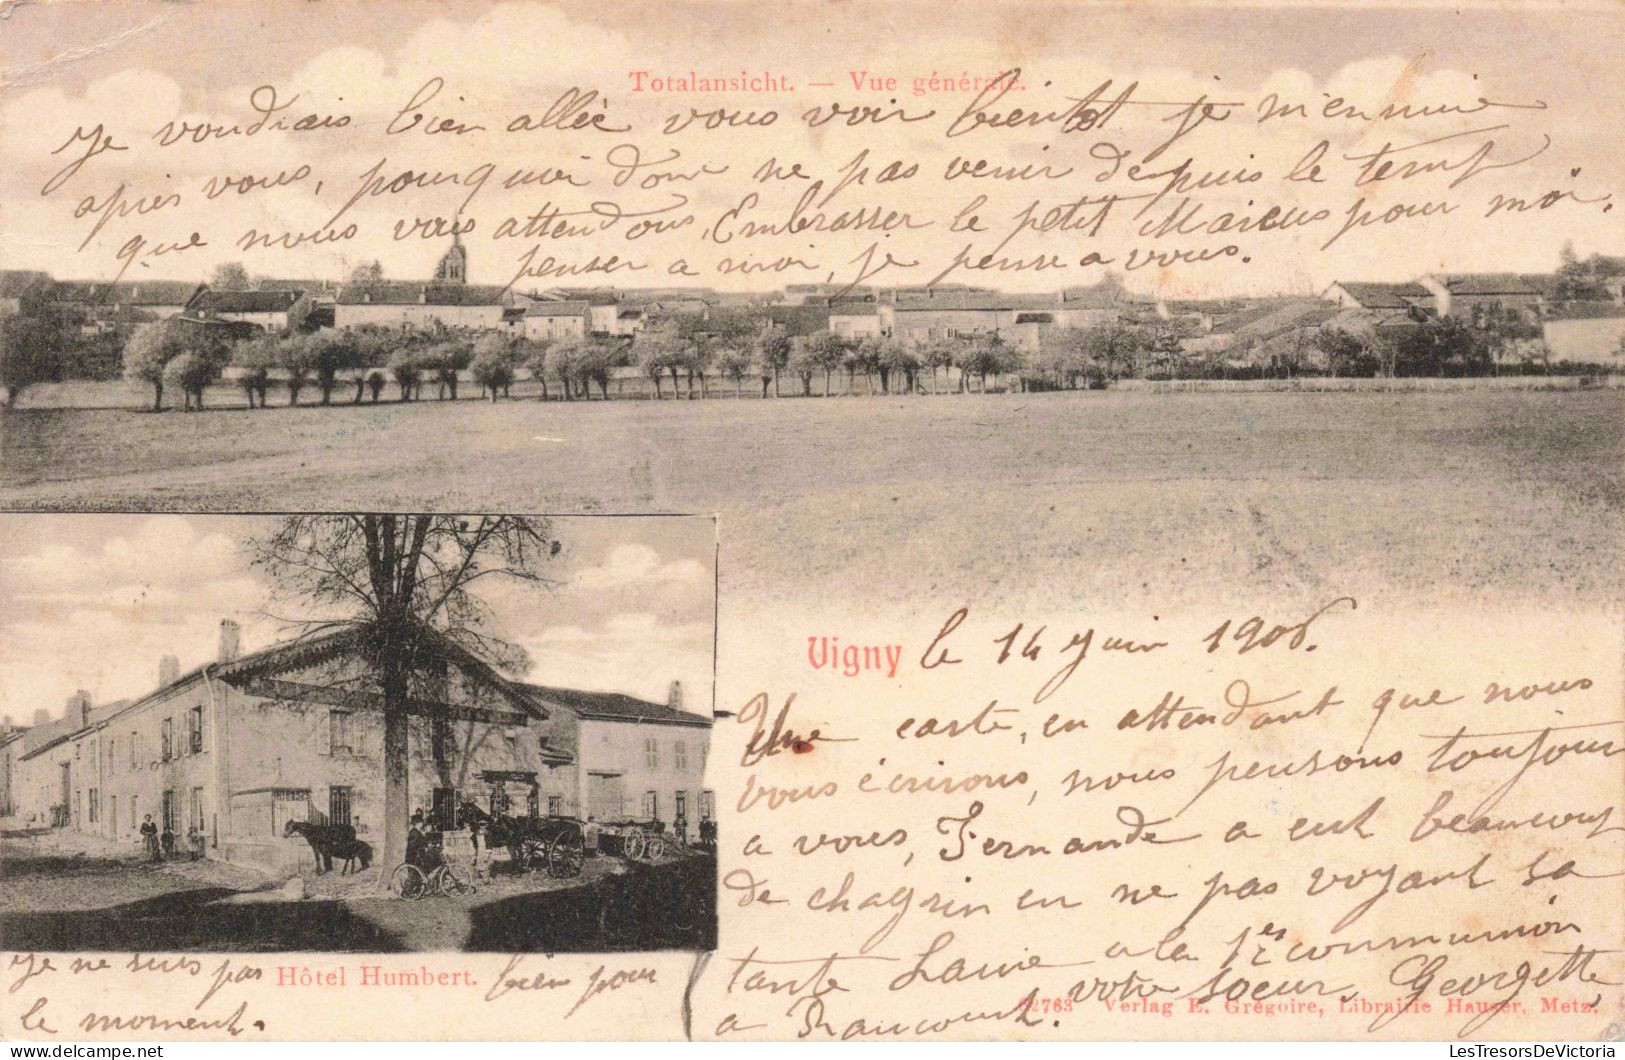 Totalansicht. — Vue générale.
Je voudrais bien allée vous voir bientot je m'ennuie
après vous, pourquoi donc ne pas venir depuis le temp
que nous vous attendons, Embrasser le petit Marcus pour moi,
penser a moi, je pense a vous.
Vigny le 14 Juin 1906.
Une carte, en attendant que nous
vous écrirons, nous pensons toujour
a vous, Fernande a eut beaucoup
de chagrin en ne pas voyant sa
tante a la 1es communion
a Rancourt. votre soeur, Georgette,
Verlag E. Grégoire, Librairie Hauser, Metz.
Je ne suis pas bien pour
Hôtel Humbert.
le moment.
LesTresorsDeVictoria